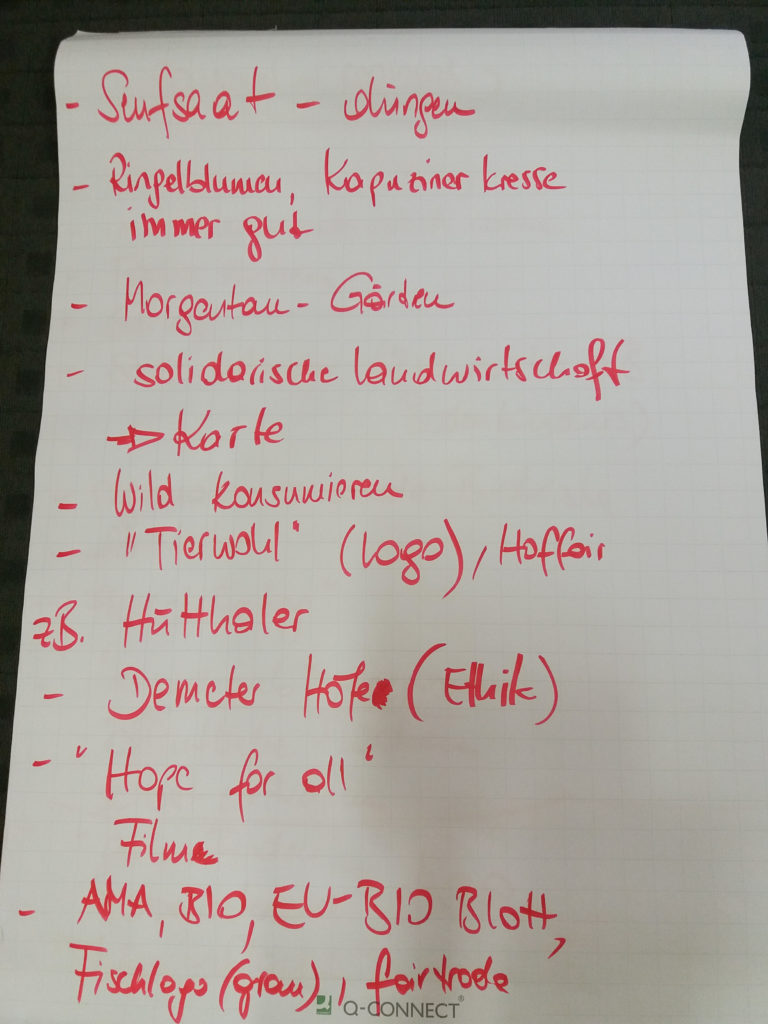 - Senfsaat - düngen
- Ringelblumen, Kapuzinerkresse
immer gut
- Morgentau - Gärten
- solidarische Landwirtschaft
→ Karte
- Wild konsumieren
- "Tierwohl" (Logo), Hoffair
zB. Hütthaler
- Demeter Höfe (Ethik)
- "Hope for all"
Filme
- AMA, BIO, EU-BIO Blatt,
Fischlogo (grau), fairtrade
Q-CONNECT®